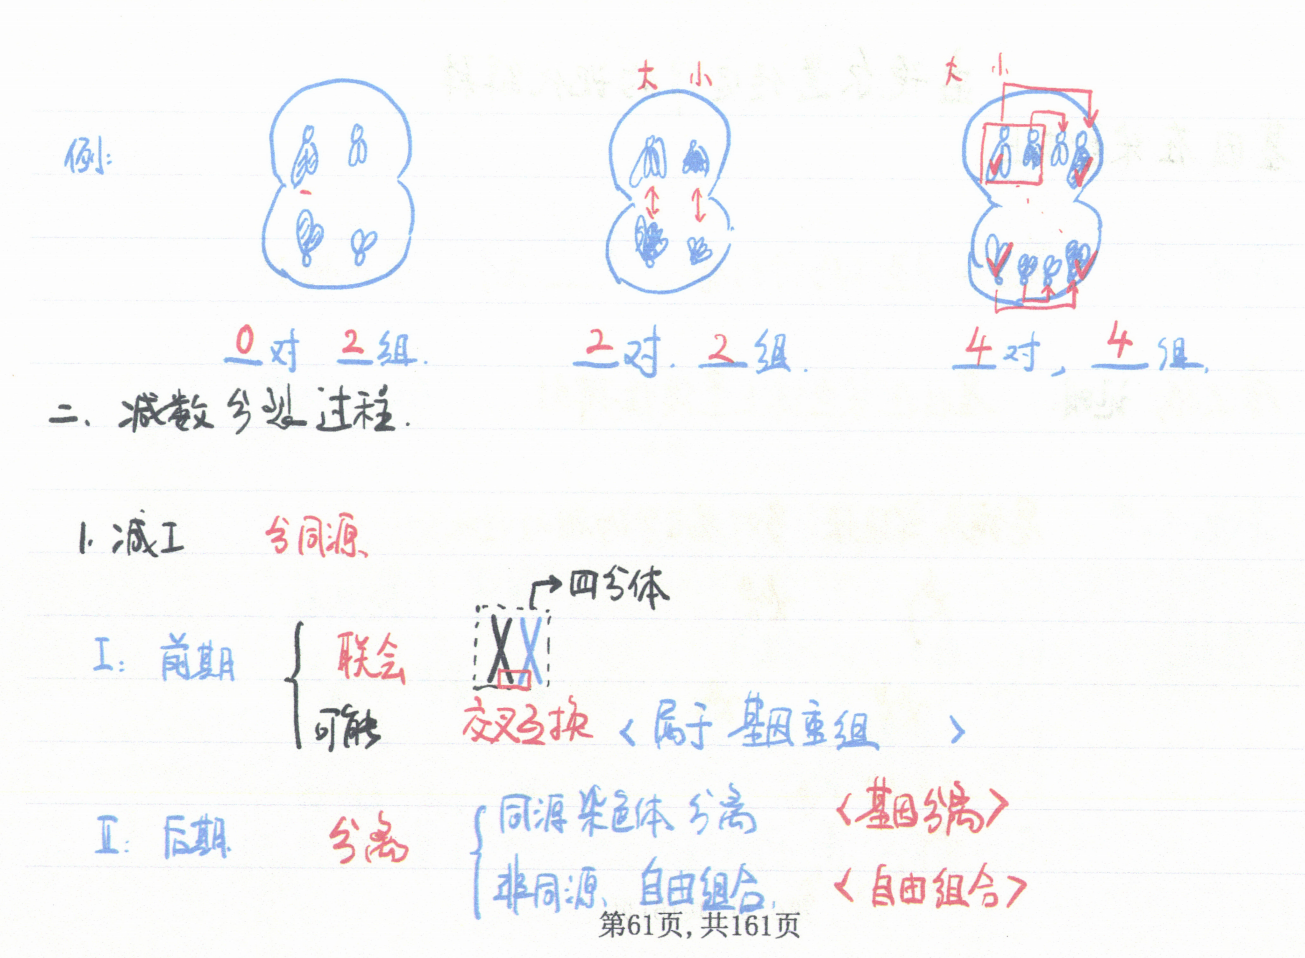 大 小 大 小
例:
0对 2组. 2对. 2组. 4对, 4组.
二、减数分裂过程.
1. 减I 分同源
四分体
I: 前期 联会
可能 交叉互换 <属于基因重组>
II: 后期 分离 同源染色体分离 <基因分离>
非同源、自由组合. <自由组合>
第61页, 共161页